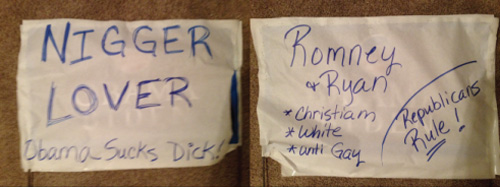 NIGGER
LOVER
Obama Sucks Dick!
Romney
& Ryan
*Christian
*White
*anti Gay
Republicans
Rule!